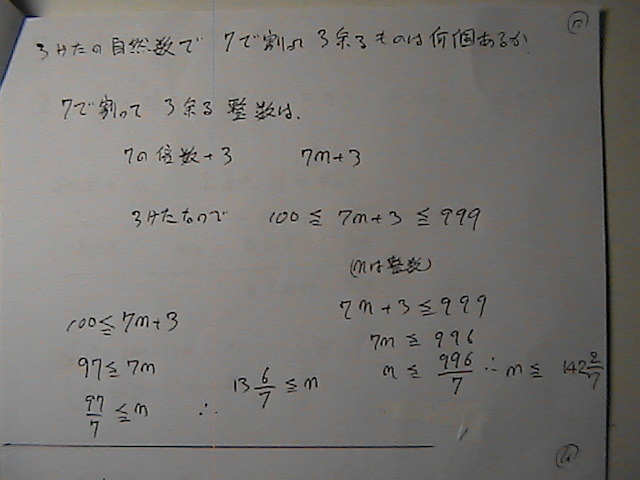 3けたの自然数で 7で割って 3余るものは何個あるか
7で割って 3余る 整数は、
7の倍数+3 7n+3
3けたなので 100 ≦ 7n+3 ≦ 999
(nは整数)
100≦7n+3
97≦7n
97/7 ≦n ∴ 13 6/7 ≦ n
7n+3 ≦999
7n ≦ 996
n ≦ 996/7 ∴ n ≦ 142 2/7